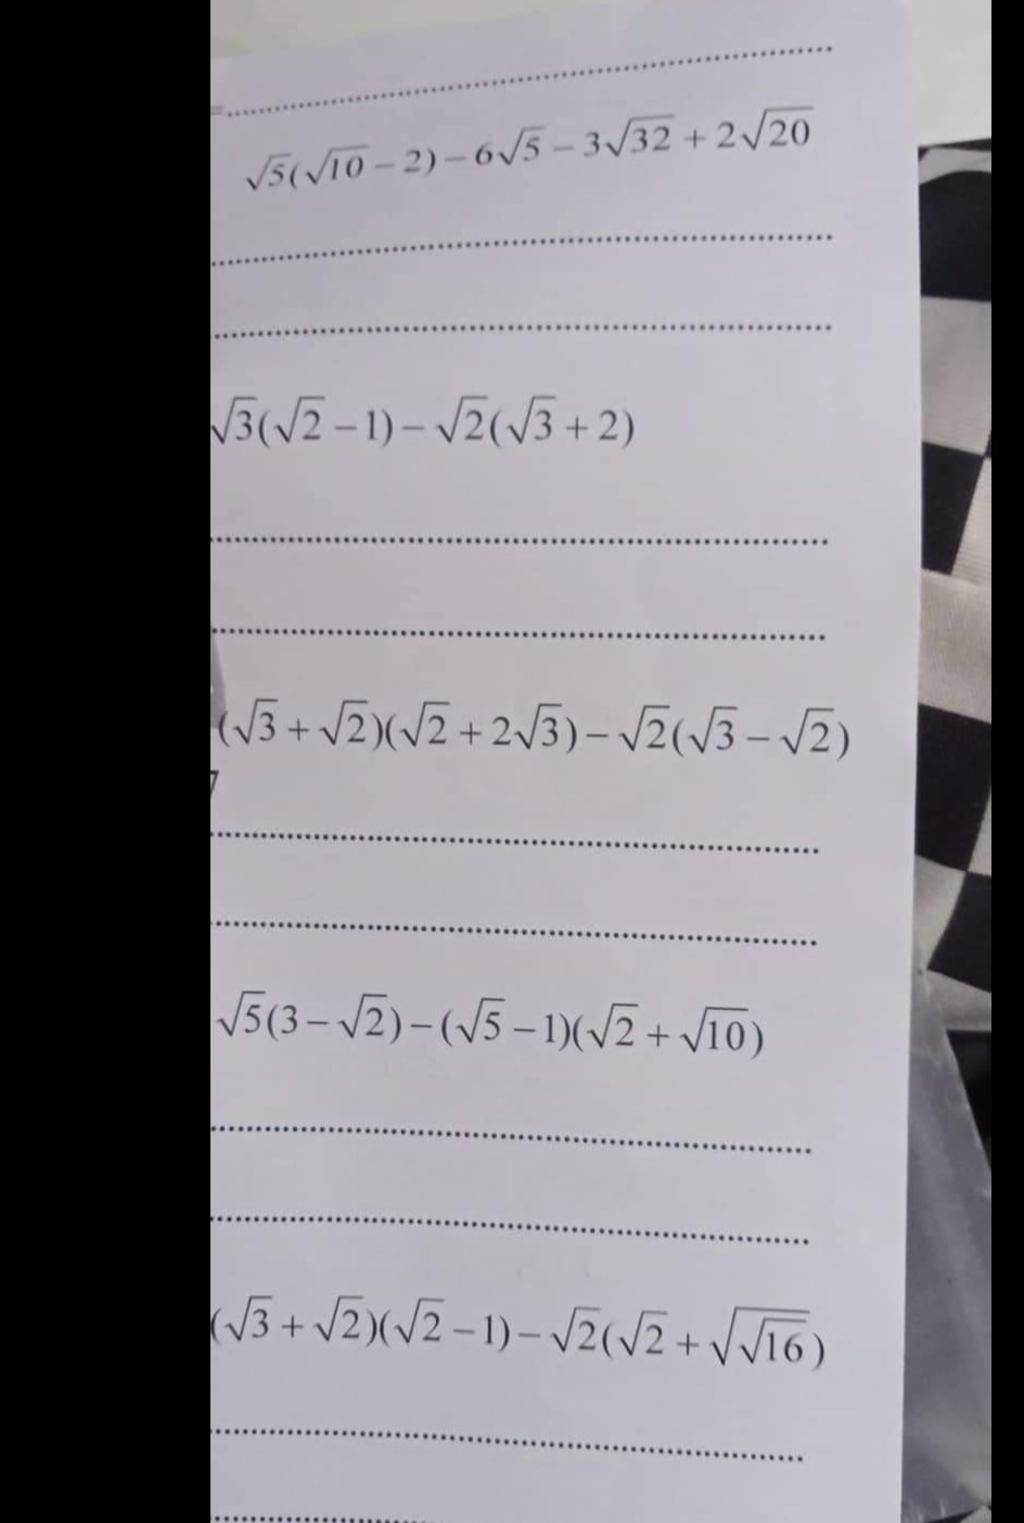 =
√5(√10 − 2) − 6√5 − 3√32 + 2√20
√3(√2 − 1) − √2(√3 + 2)
(√3 + √2)(√2 + 2√3) − √2(√3 − √2)
√5(3 − √2) − (√5 − 1)(√2 + √10)
(√3 + √2)(√2 − 1) − √2(√2 + √√16)